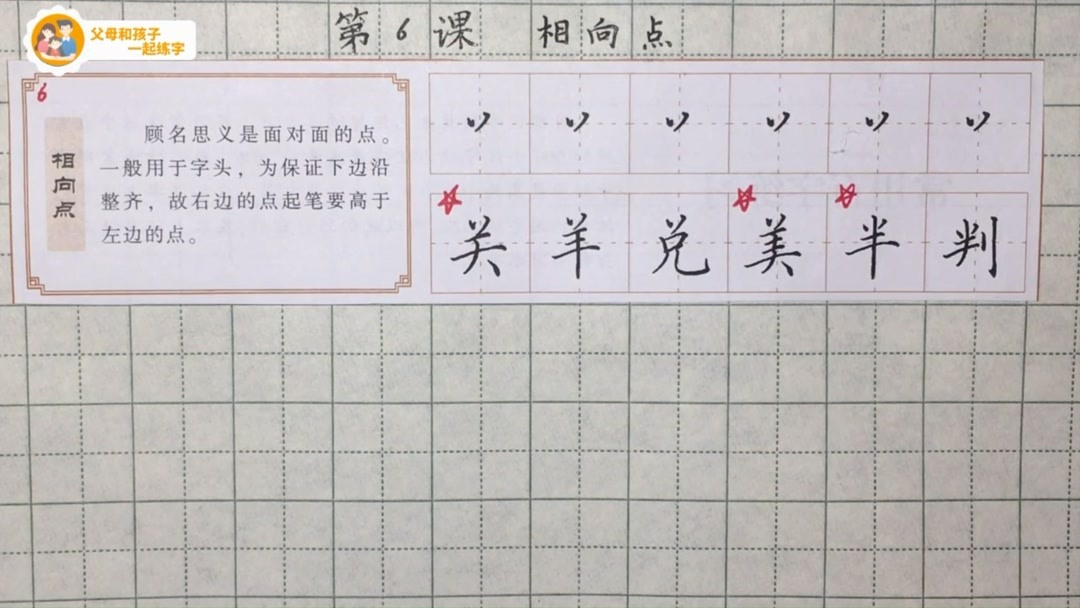 父母和孩子
一起练字
第6课 相向点
6
相向点
顾名思义是面对面的点。
一般用于字头，为保证下边沿
整齐，故右边的点起笔要高于
左边的点。
关 羊 兑 美 半 判